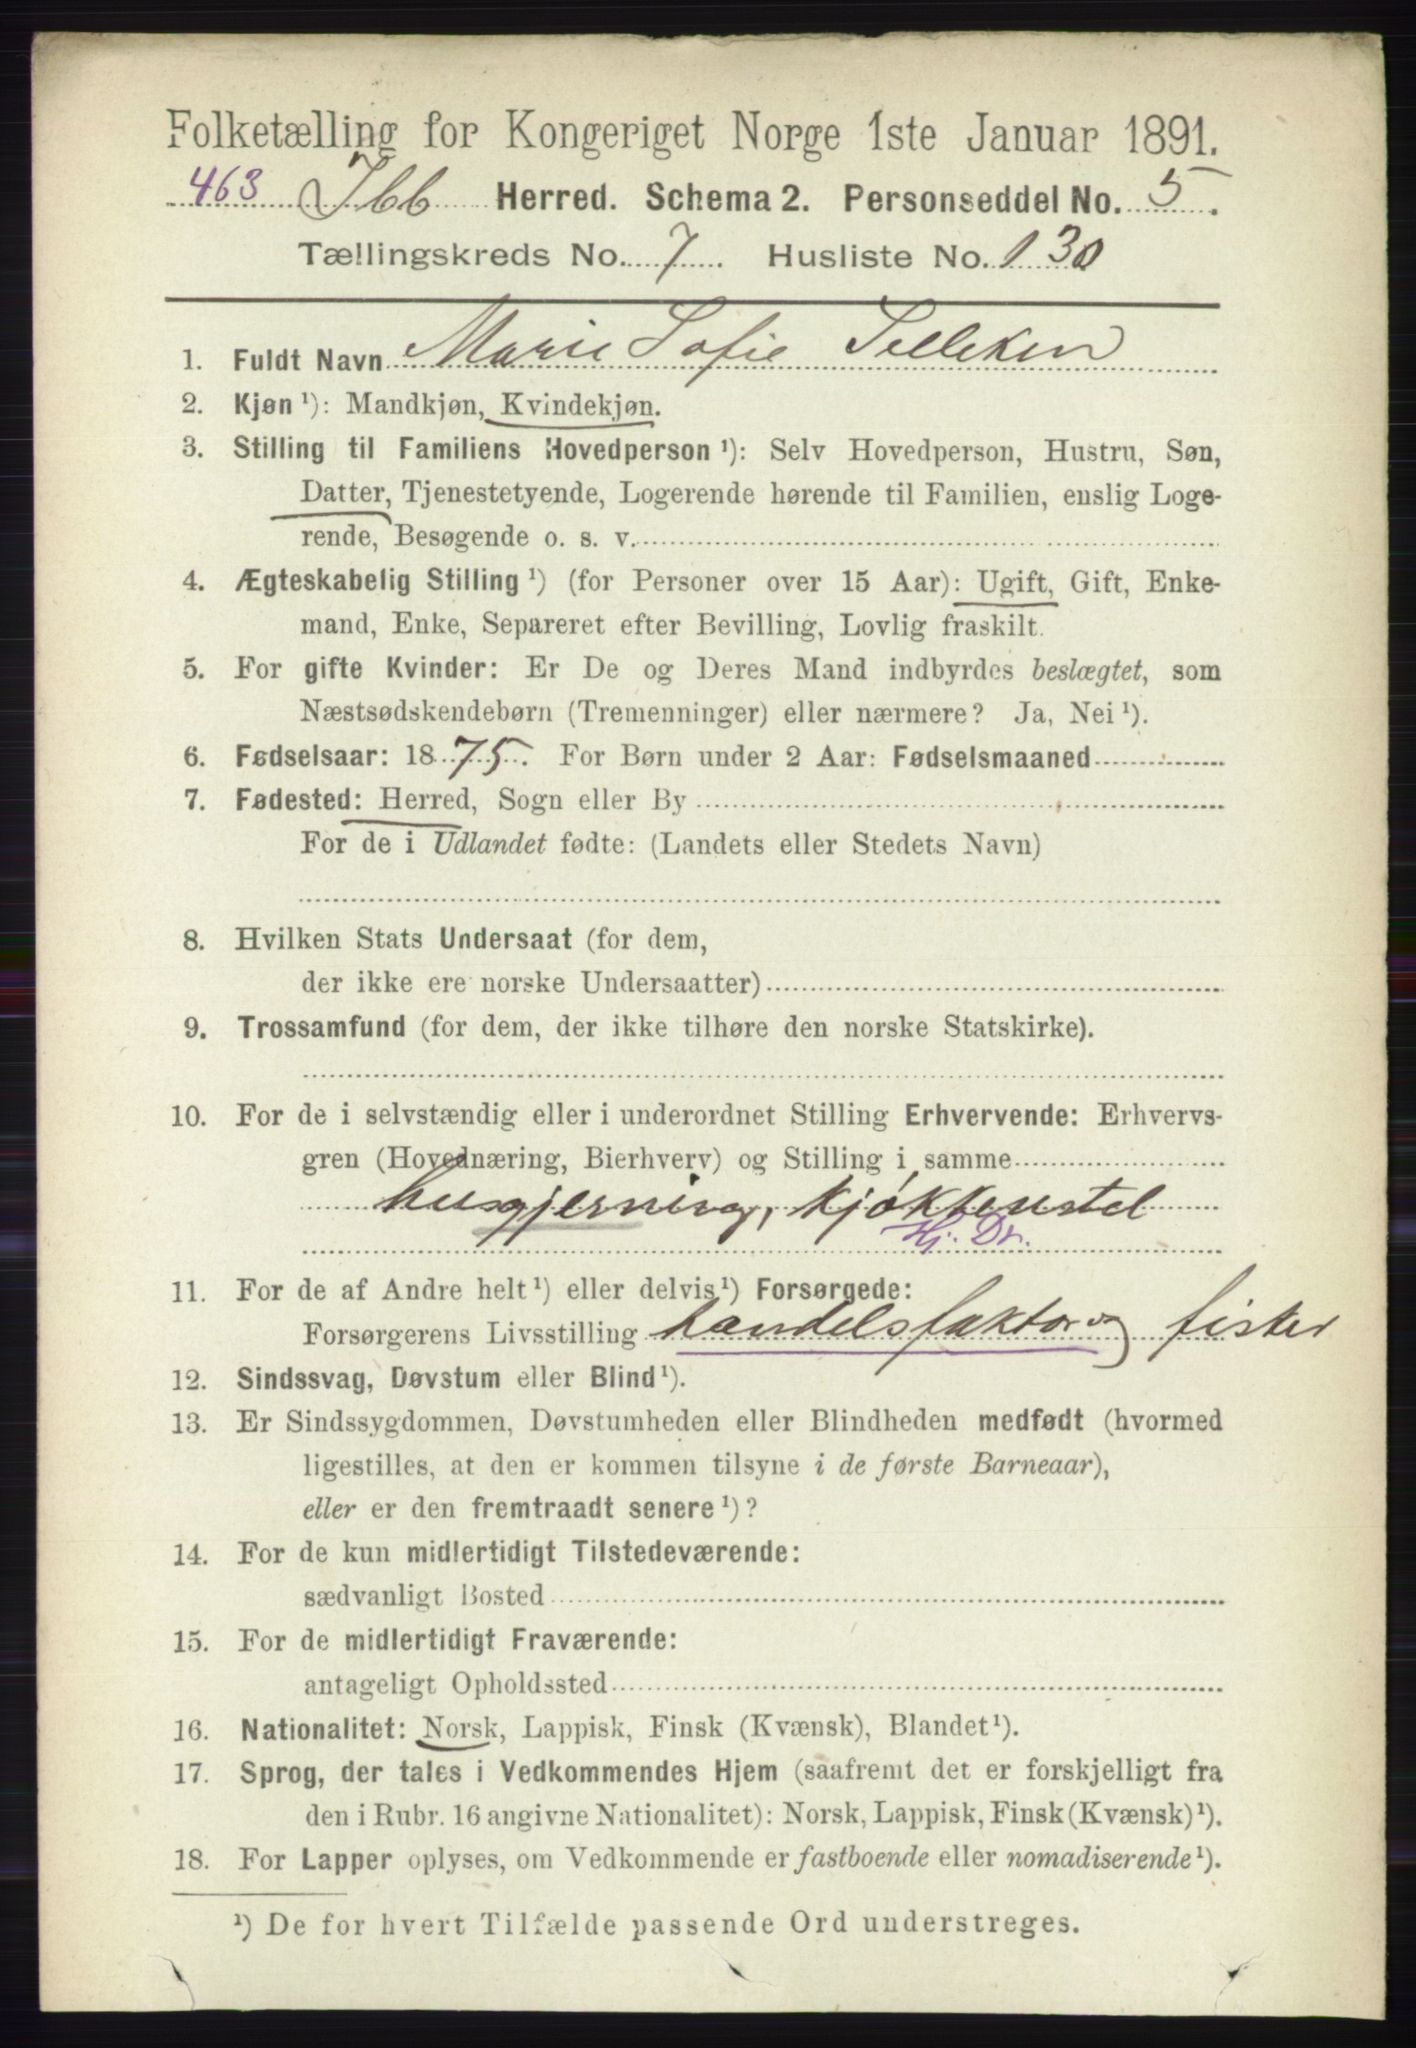 Folketælling for Kongeriget Norge 1ste Januar 1891.
463 Ibb Herred. Schema 2. Personseddel No. 5.
Tællingskreds No. 7. Husliste No. 130
1. Fuldt Navn Marie Sofie Selleken
2. Kjøn ¹): Mandkjøn, Kvindekjøn.
3. Stilling til Familiens Hovedperson ¹): Selv Hovedperson, Hustru, Søn,
Datter, Tjenestetyende, Logerende hørende til Familien, enslig Loge-
rende, Besøgende o. s. v.
4. Ægteskabelig Stilling ¹) (for Personer over 15 Aar): Ugift, Gift, Enke-
mand, Enke, Separeret efter Bevilling, Lovlig fraskilt.
5. For gifte Kvinder: Er De og Deres Mand indbyrdes beslægtet, som
Næstsødskendebørn (Tremenninger) eller nærmere? Ja, Nei ¹).
6. Fødselsaar: 1875. For Børn under 2 Aar: Fødselsmaaned
7. Fødested: Herred, Sogn eller By
For de i Udlandet fødte: (Landets eller Stedets Navn)
8. Hvilken Stats Undersaat (for dem,
der ikke ere norske Undersaatter)
9. Trossamfund (for dem, der ikke tilhøre den norske Statskirke).
10. For de i selvstændig eller i underordnet Stilling Erhvervende: Erhvervs-
gren (Hovednæring, Bierhverv) og Stilling i samme
husgjerning, kjøkkenstel
Hj. Dt.
11. For de af Andre helt ¹) eller delvis ¹) Forsørgede:
Forsørgerens Livsstilling handelsfaktor og fisker
12. Sindssvag, Døvstum eller Blind ¹).
13. Er Sindssygdommen, Døvstumheden eller Blindheden medfødt (hvormed
ligestilles, at den er kommen tilsyne i de første Barneaar),
eller er den fremtraadt senere ¹)?
14. For de kun midlertidigt Tilstedeværende:
sædvanligt Bosted
15. For de midlertidigt Fraværende:
antageligt Opholdssted
16. Nationalitet: Norsk, Lappisk, Finsk (Kvænsk), Blandet ¹).
17. Sprog, der tales i Vedkommendes Hjem (saafremt det er forskjelligt fra
den i Rubr. 16 angivne Nationalitet): Norsk, Lappisk, Finsk (Kvænsk) ¹).
18. For Lapper oplyses, om Vedkommende er fastboende eller nomadiserende ¹).
¹) De for hvert Tilfælde passende Ord understreges.